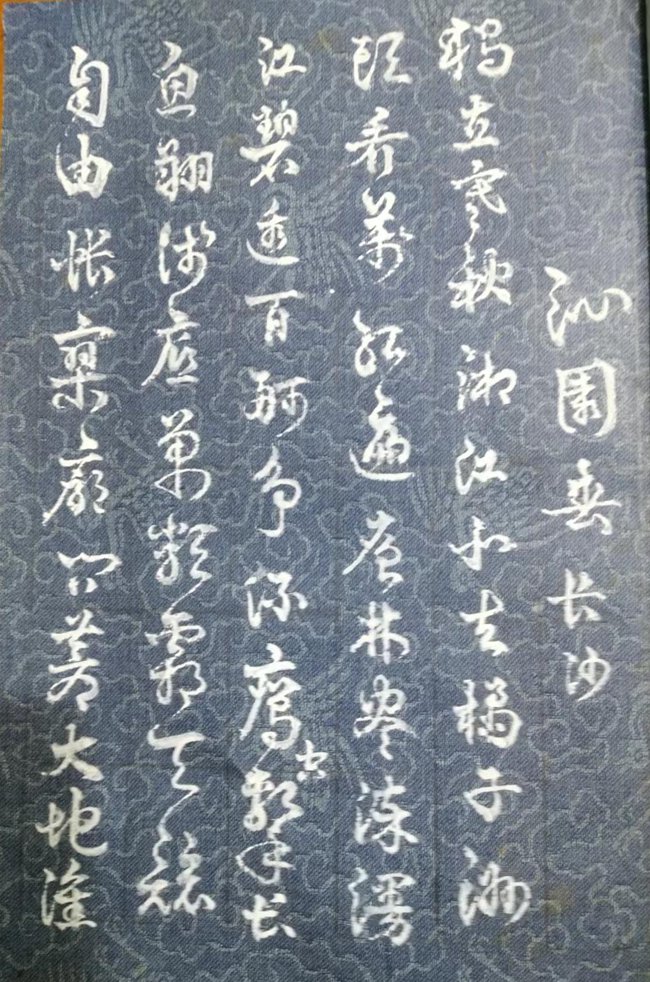 沁園春 长沙
獨立寒秋湘江北去橘子洲
頭看萬红遍层林尽染漫
江碧透百舸争流鹰擊长
空
魚翔浅底萬類霜天競
自由怅寥廓问蒼大地谁